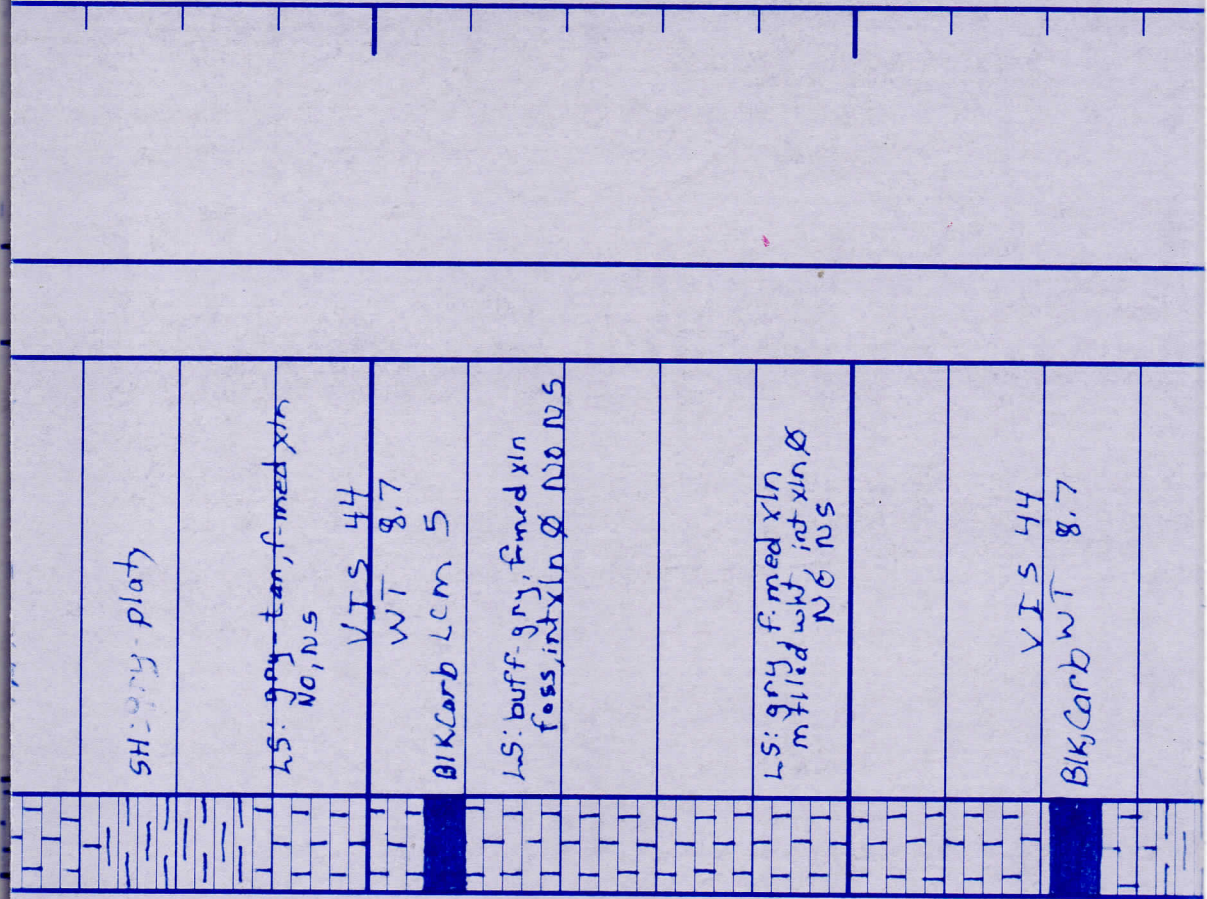 SH: gry platy
LS: gry-tan, f-med xln
NO, NS
VIS 44
WT 8.7
Blk Carb LCM 5
LS: buff-gry, f-med xln
foss, int xln Ø NO NS
LS: gry f med xln
mtlled wht int xln Ø
NO NS
VIS 44
Blk, Carb WT 8.7